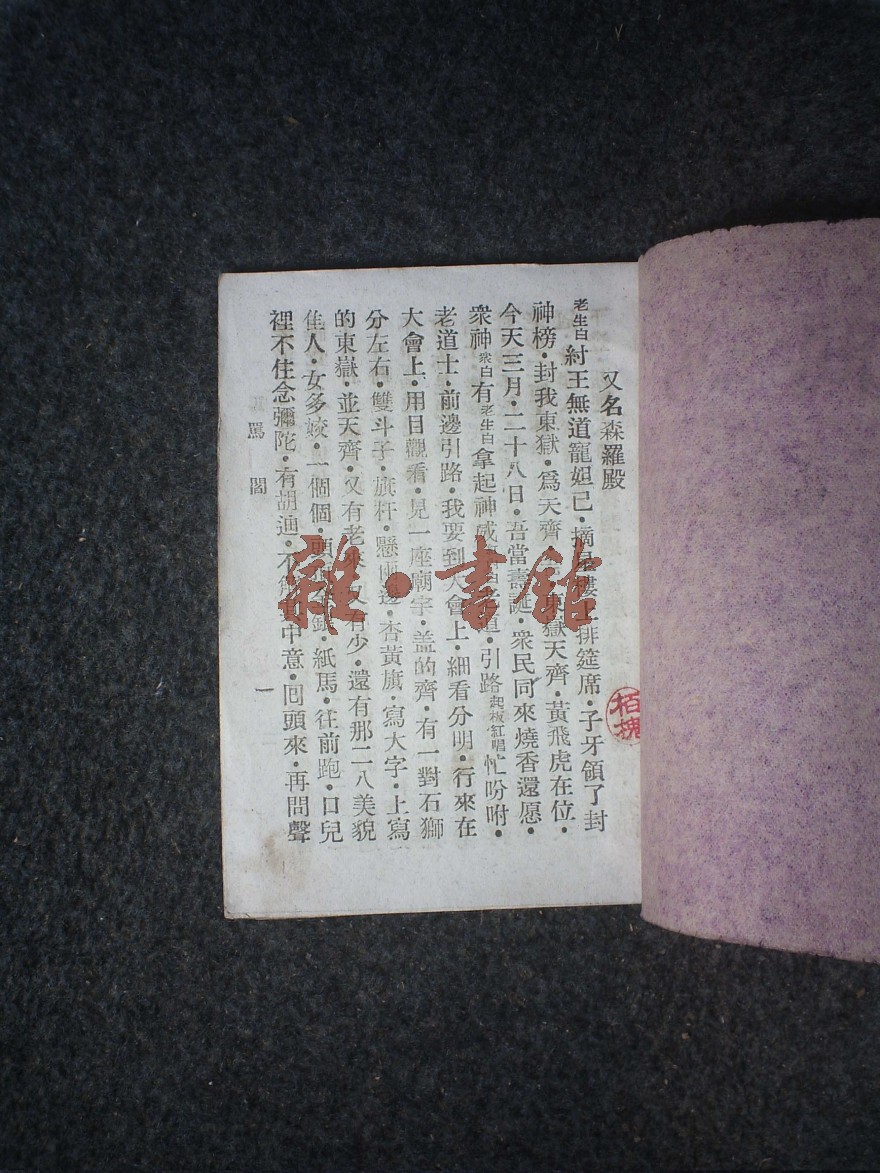 又名森羅殿
老生白 紂王無道寵妲己·摘星樓上排筵席·子牙領了封
神榜·封我東獄·爲天齊 東獄天齊·黃飛虎在位·
今天三月·二十八日·吾當壽誕·衆民同來燒香還愿·
衆神 衆白 有 老生白 拿起神威 道·引路 起板紅唱 忙吩咐·
老道士·前邊引路·我要到大會上·細看分明·行來在
大會上·用目觀看·見一座廟宇·盖的齊·有一對石獅
分左右·雙斗子·旗杆·懸兩邊·杏黃旗·寫大字·上寫
的東嶽·並天齊·又有老 又有少·還有那二八美貌
佳人·女多姣·一個個·頭 紙馬·往前跑·口兒
裡不住念彌陀·有胡迪·不 中意·囘頭來·再問聲
罵閻
一
栢槐
雜·書館